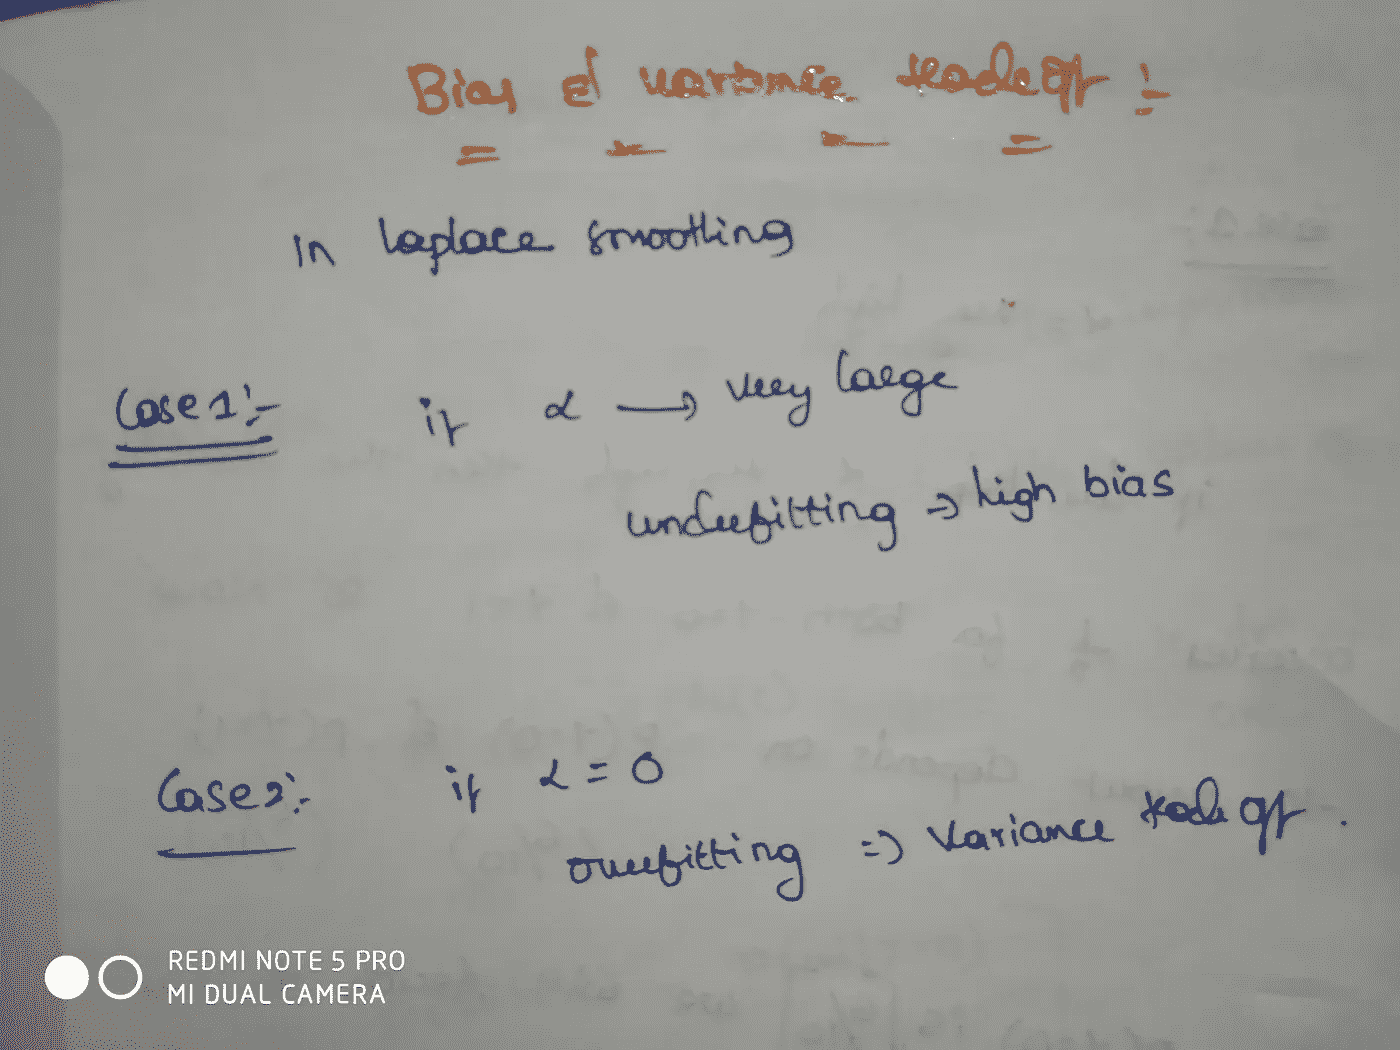 Bias & variance tradeoff :-
In laplace smoothing
Case1:- if α → very large
underfitting ⇒ high bias
Case2:- if α = 0
overfitting ⇒ variance tradeoff.
REDMI NOTE 5 PRO
MI DUAL CAMERA